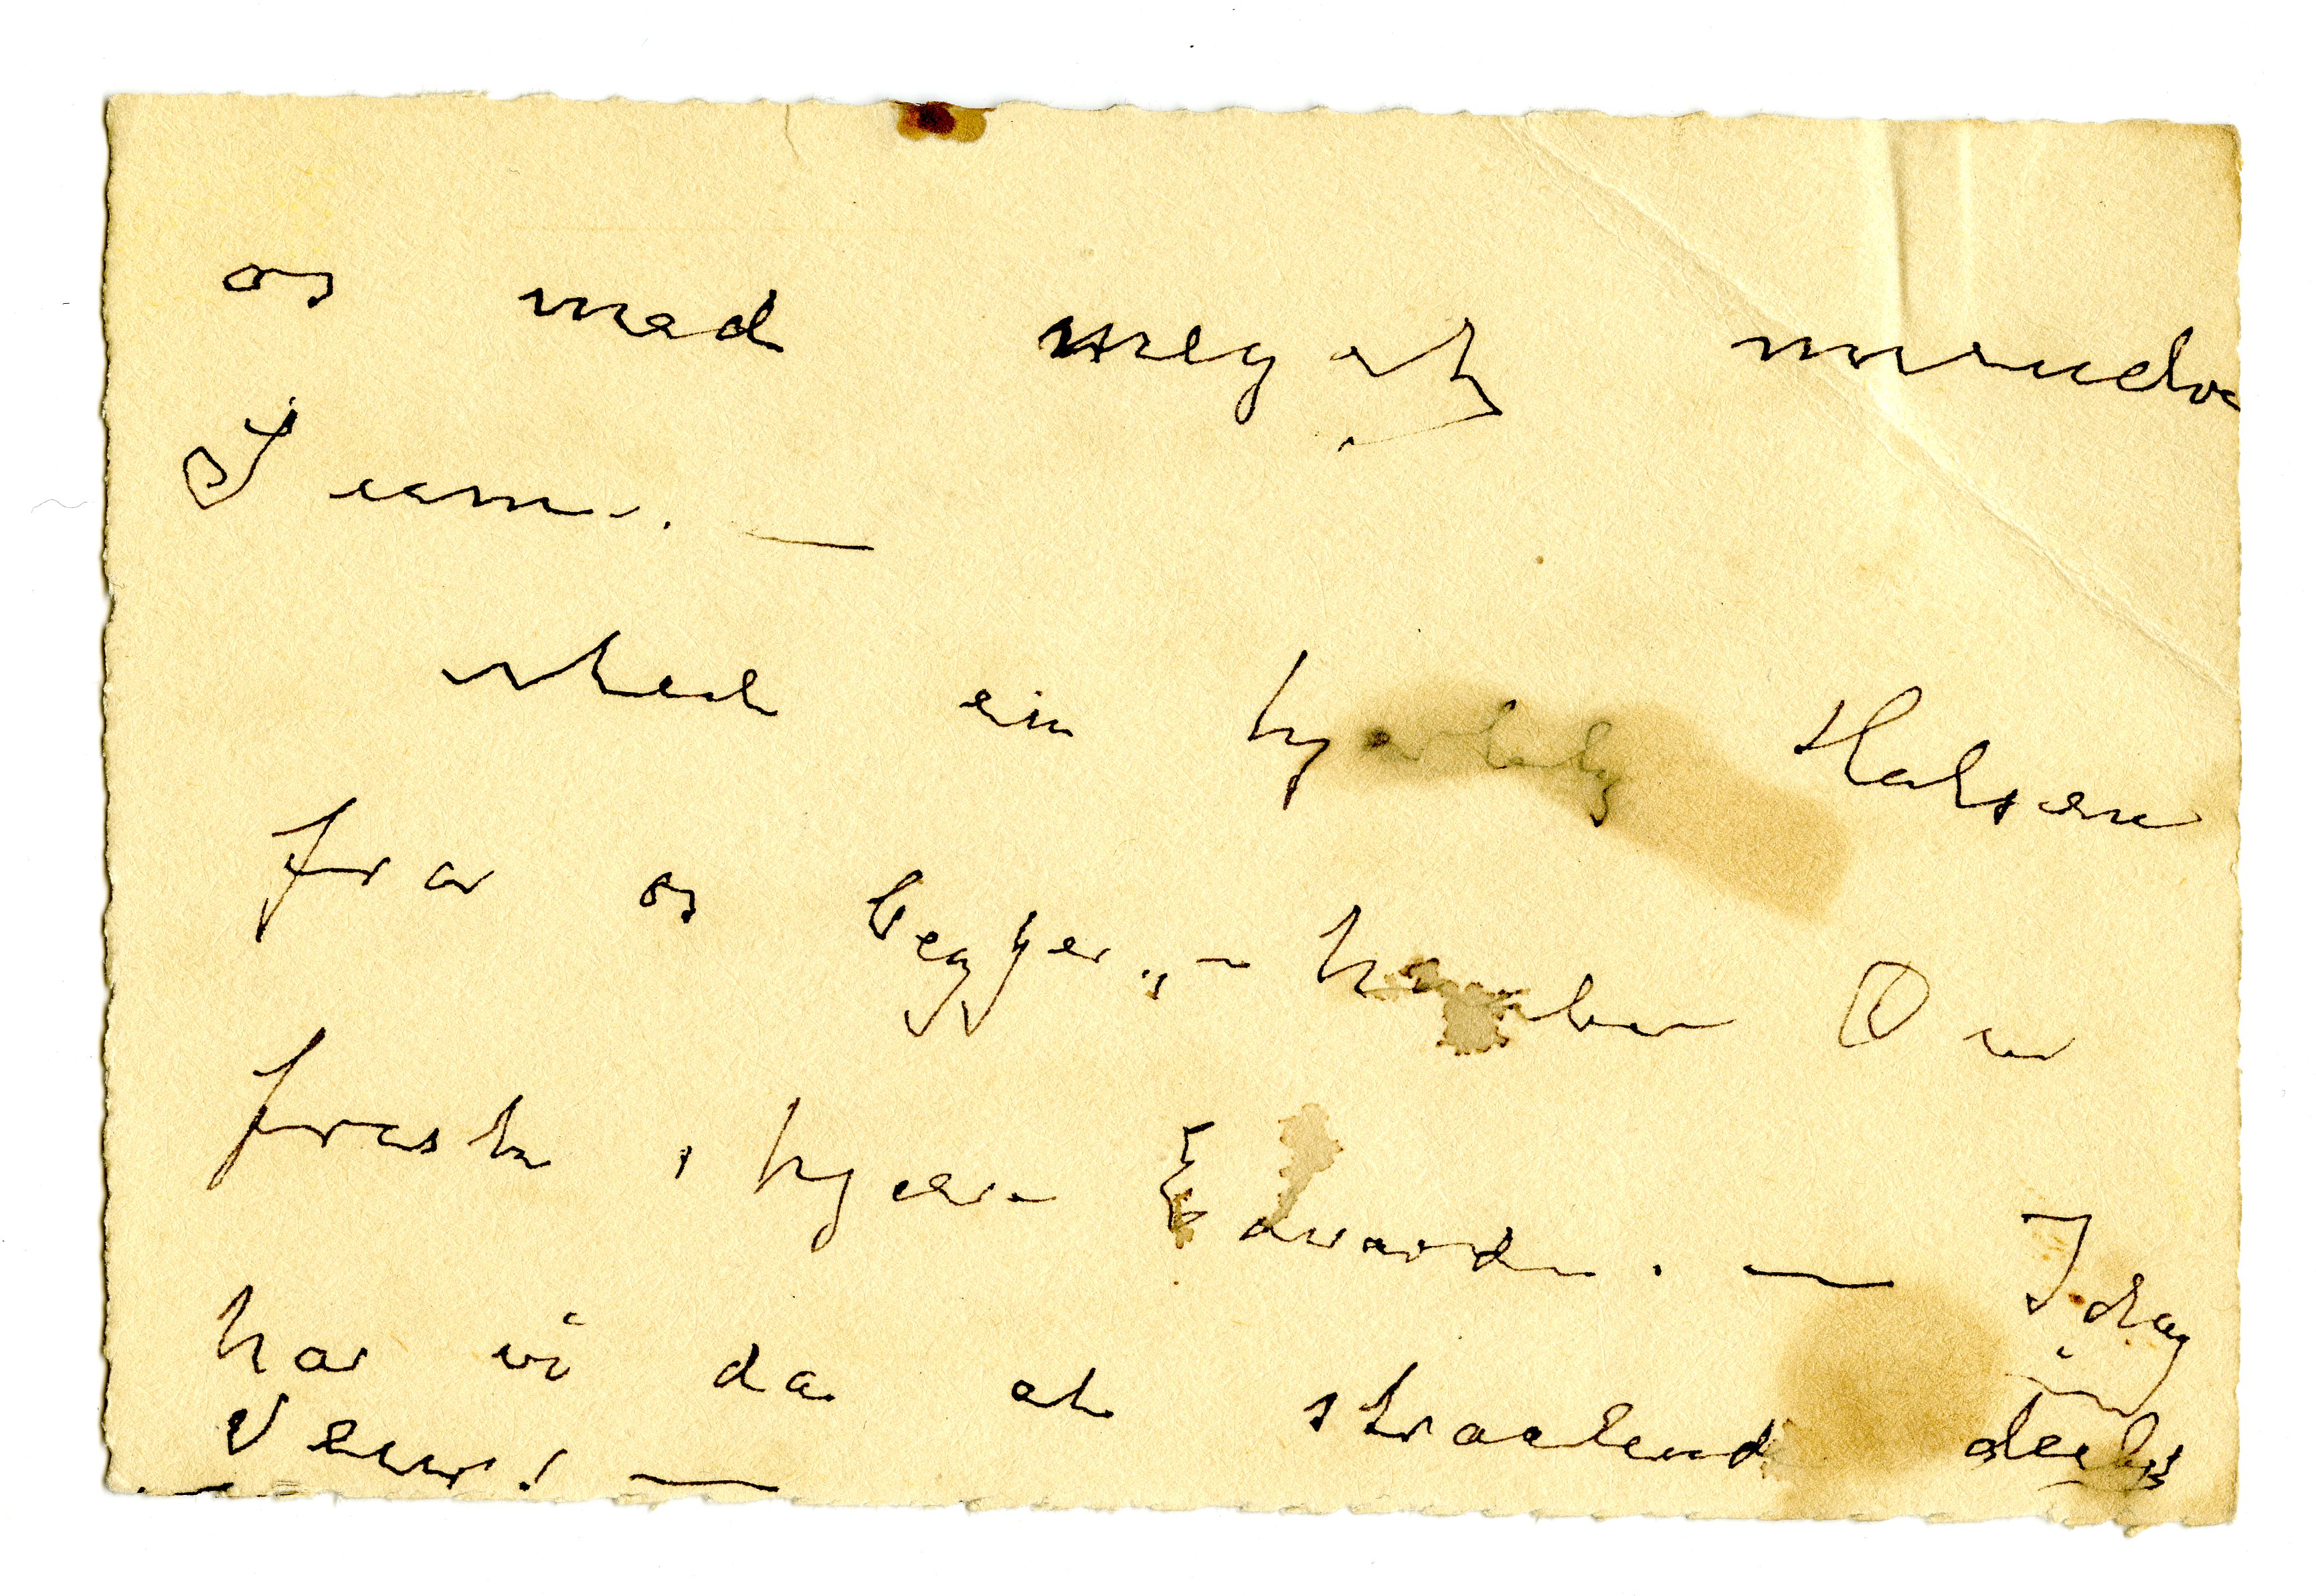 os med meget mindre
I em. —
Med en hjertelig Hilsen
fra os begge, - haaber De er
frisk, kjære Edvard. — Idag
har vi da et straalende deilig
Veir! —